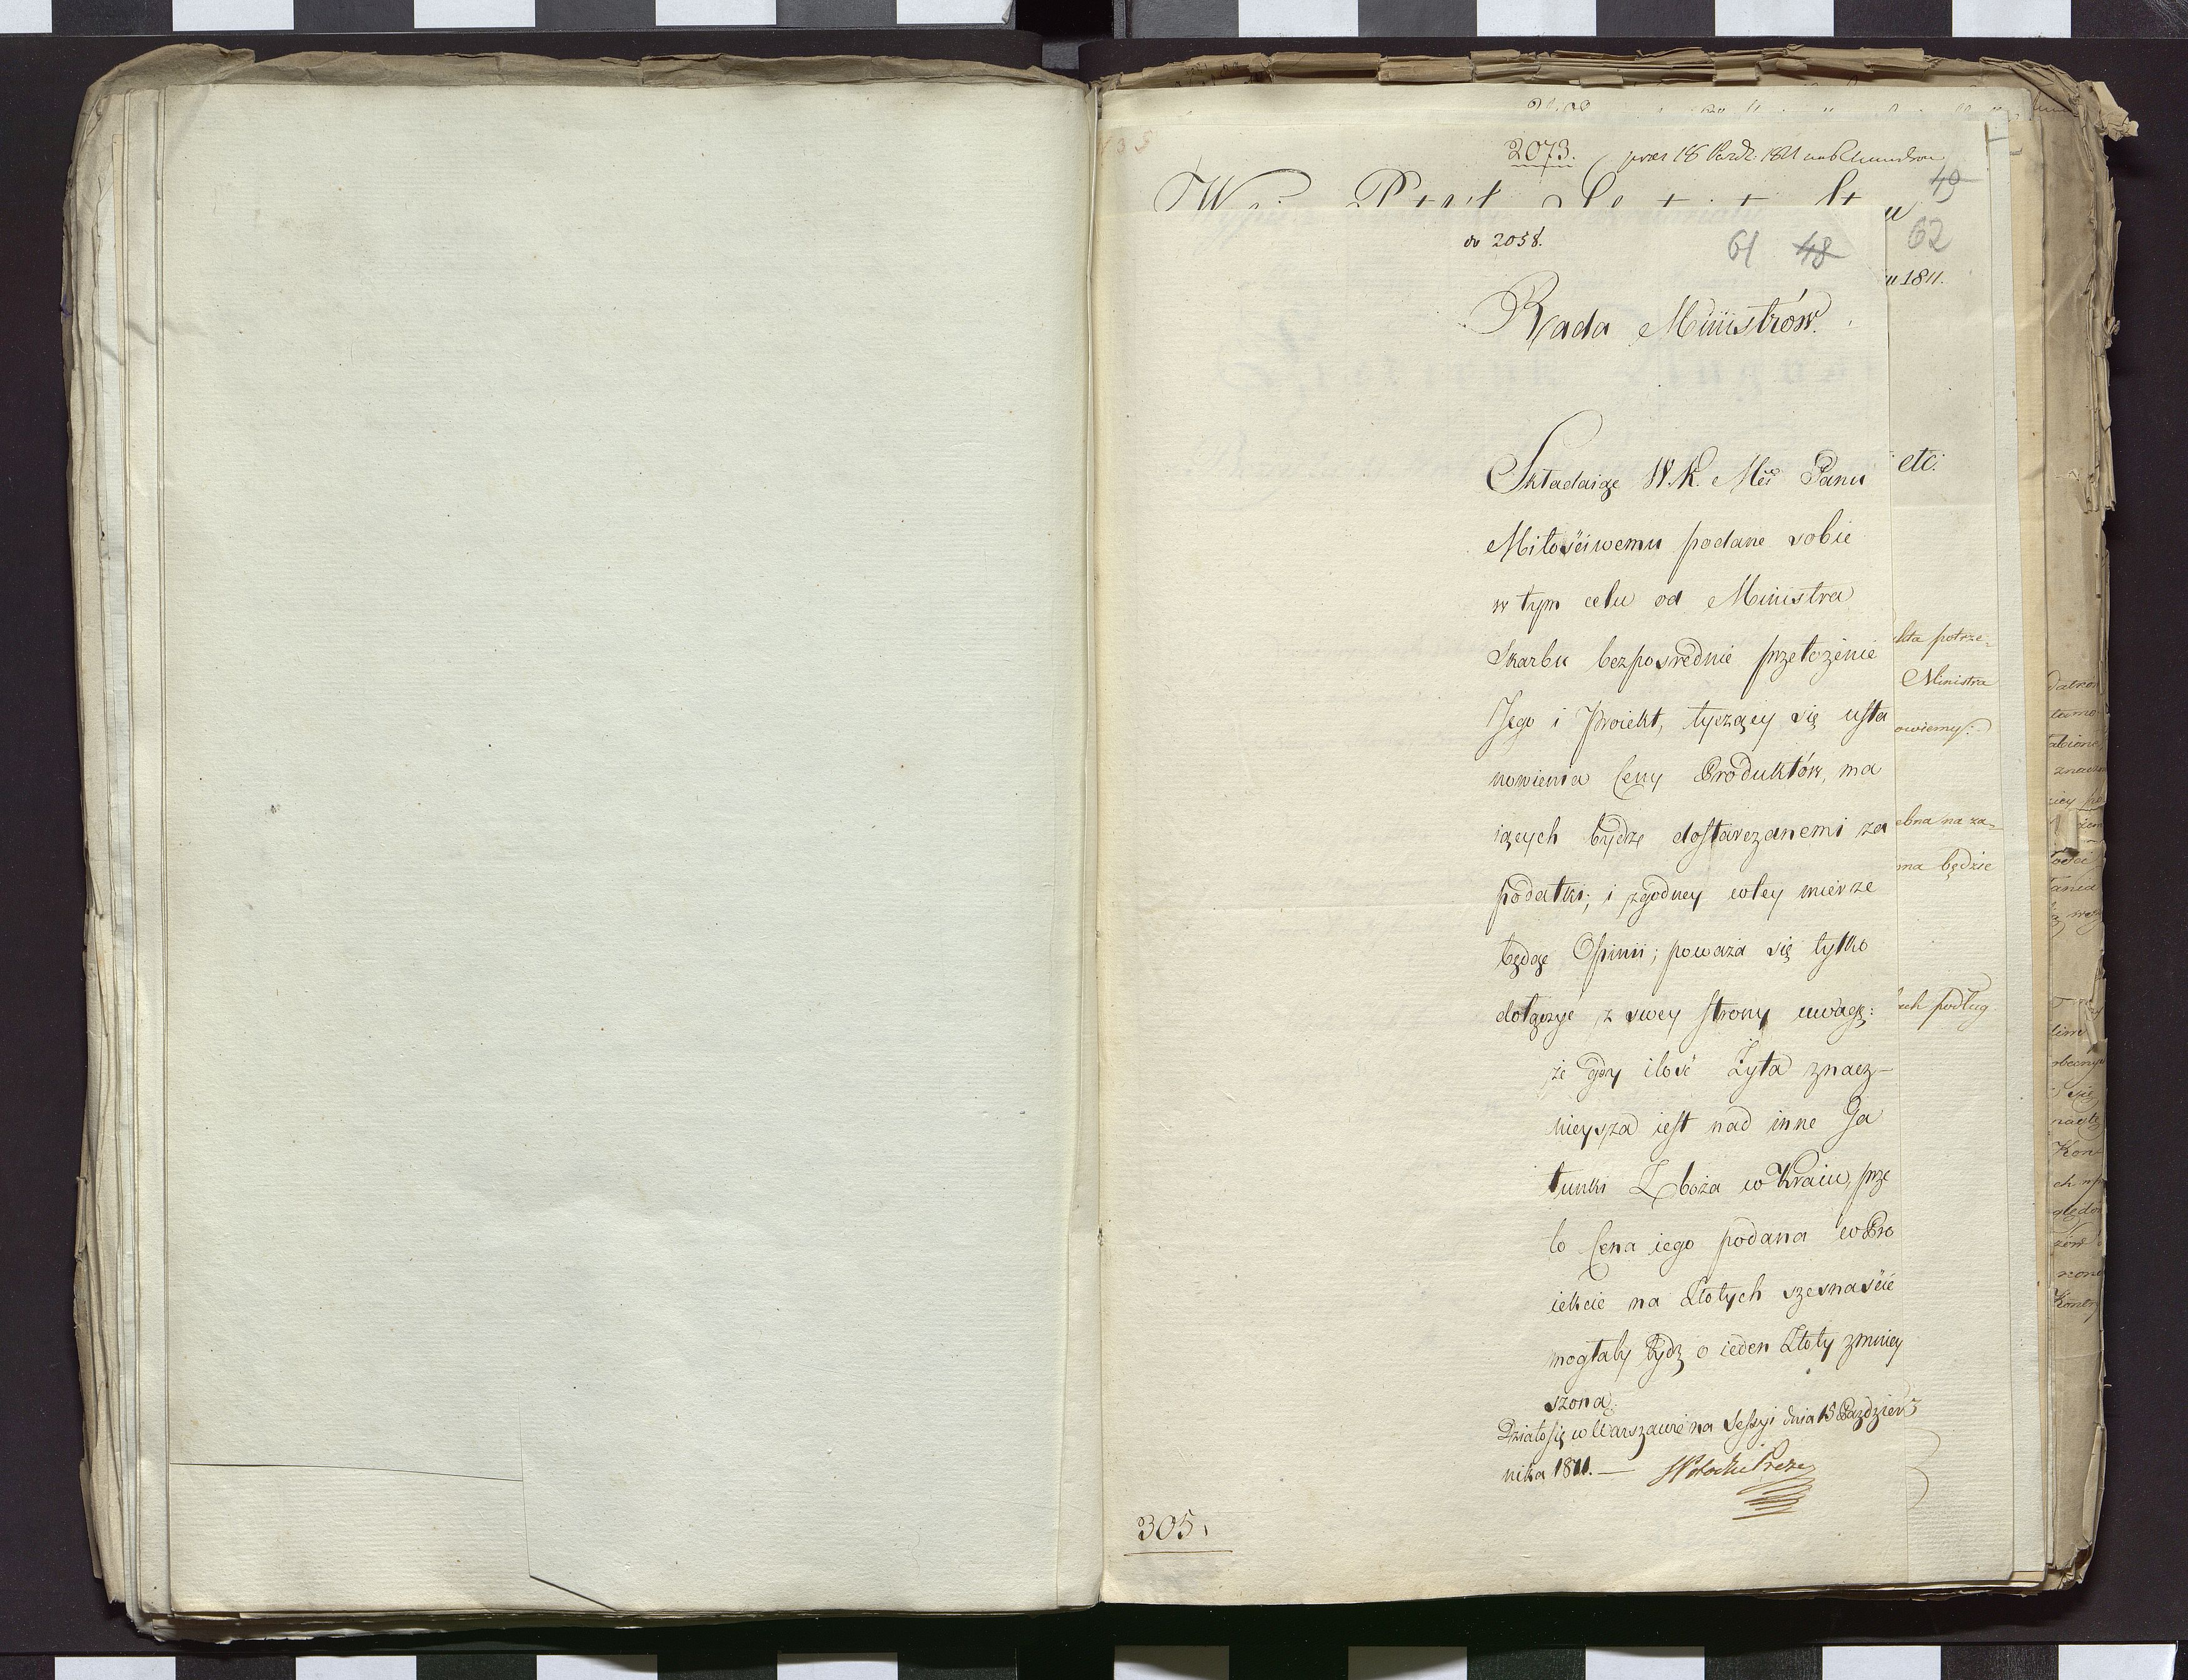 2073.
49
do 2058.
61 48
62
u 1811.
Rada Ministrów.
etc.
Składaiąc W. K. Mci Panu
Miłościwemu podane sobie
w tym celu od Ministra
Skarbu bezpośrednie przełożenie
Jego i Proiekt, tyczący się usta
nowienia Ceny Produktów, ma
iących bydź dostarczanemi za
podatki; i zgodney w tey mierze
będąc Opinii; poważa się tylko
dołączyć z swey strony uwagę:
że gdy ilość Żyta znacz-
nieysza iest nad inne Ga
tunki Zboża w Kraiu, prze
to Cena iego podana w Pro
iekcie na Złotych szesnaście
mogłaby bydź o ieden Złoty zmniey
szona.
Działo się w Warszawie na Sessyi dnia 15 Paździer-
nika 1811. —
305.
kta potrze-
Ministra
owiemy:
ebna na za-
ma będzie
ach podług